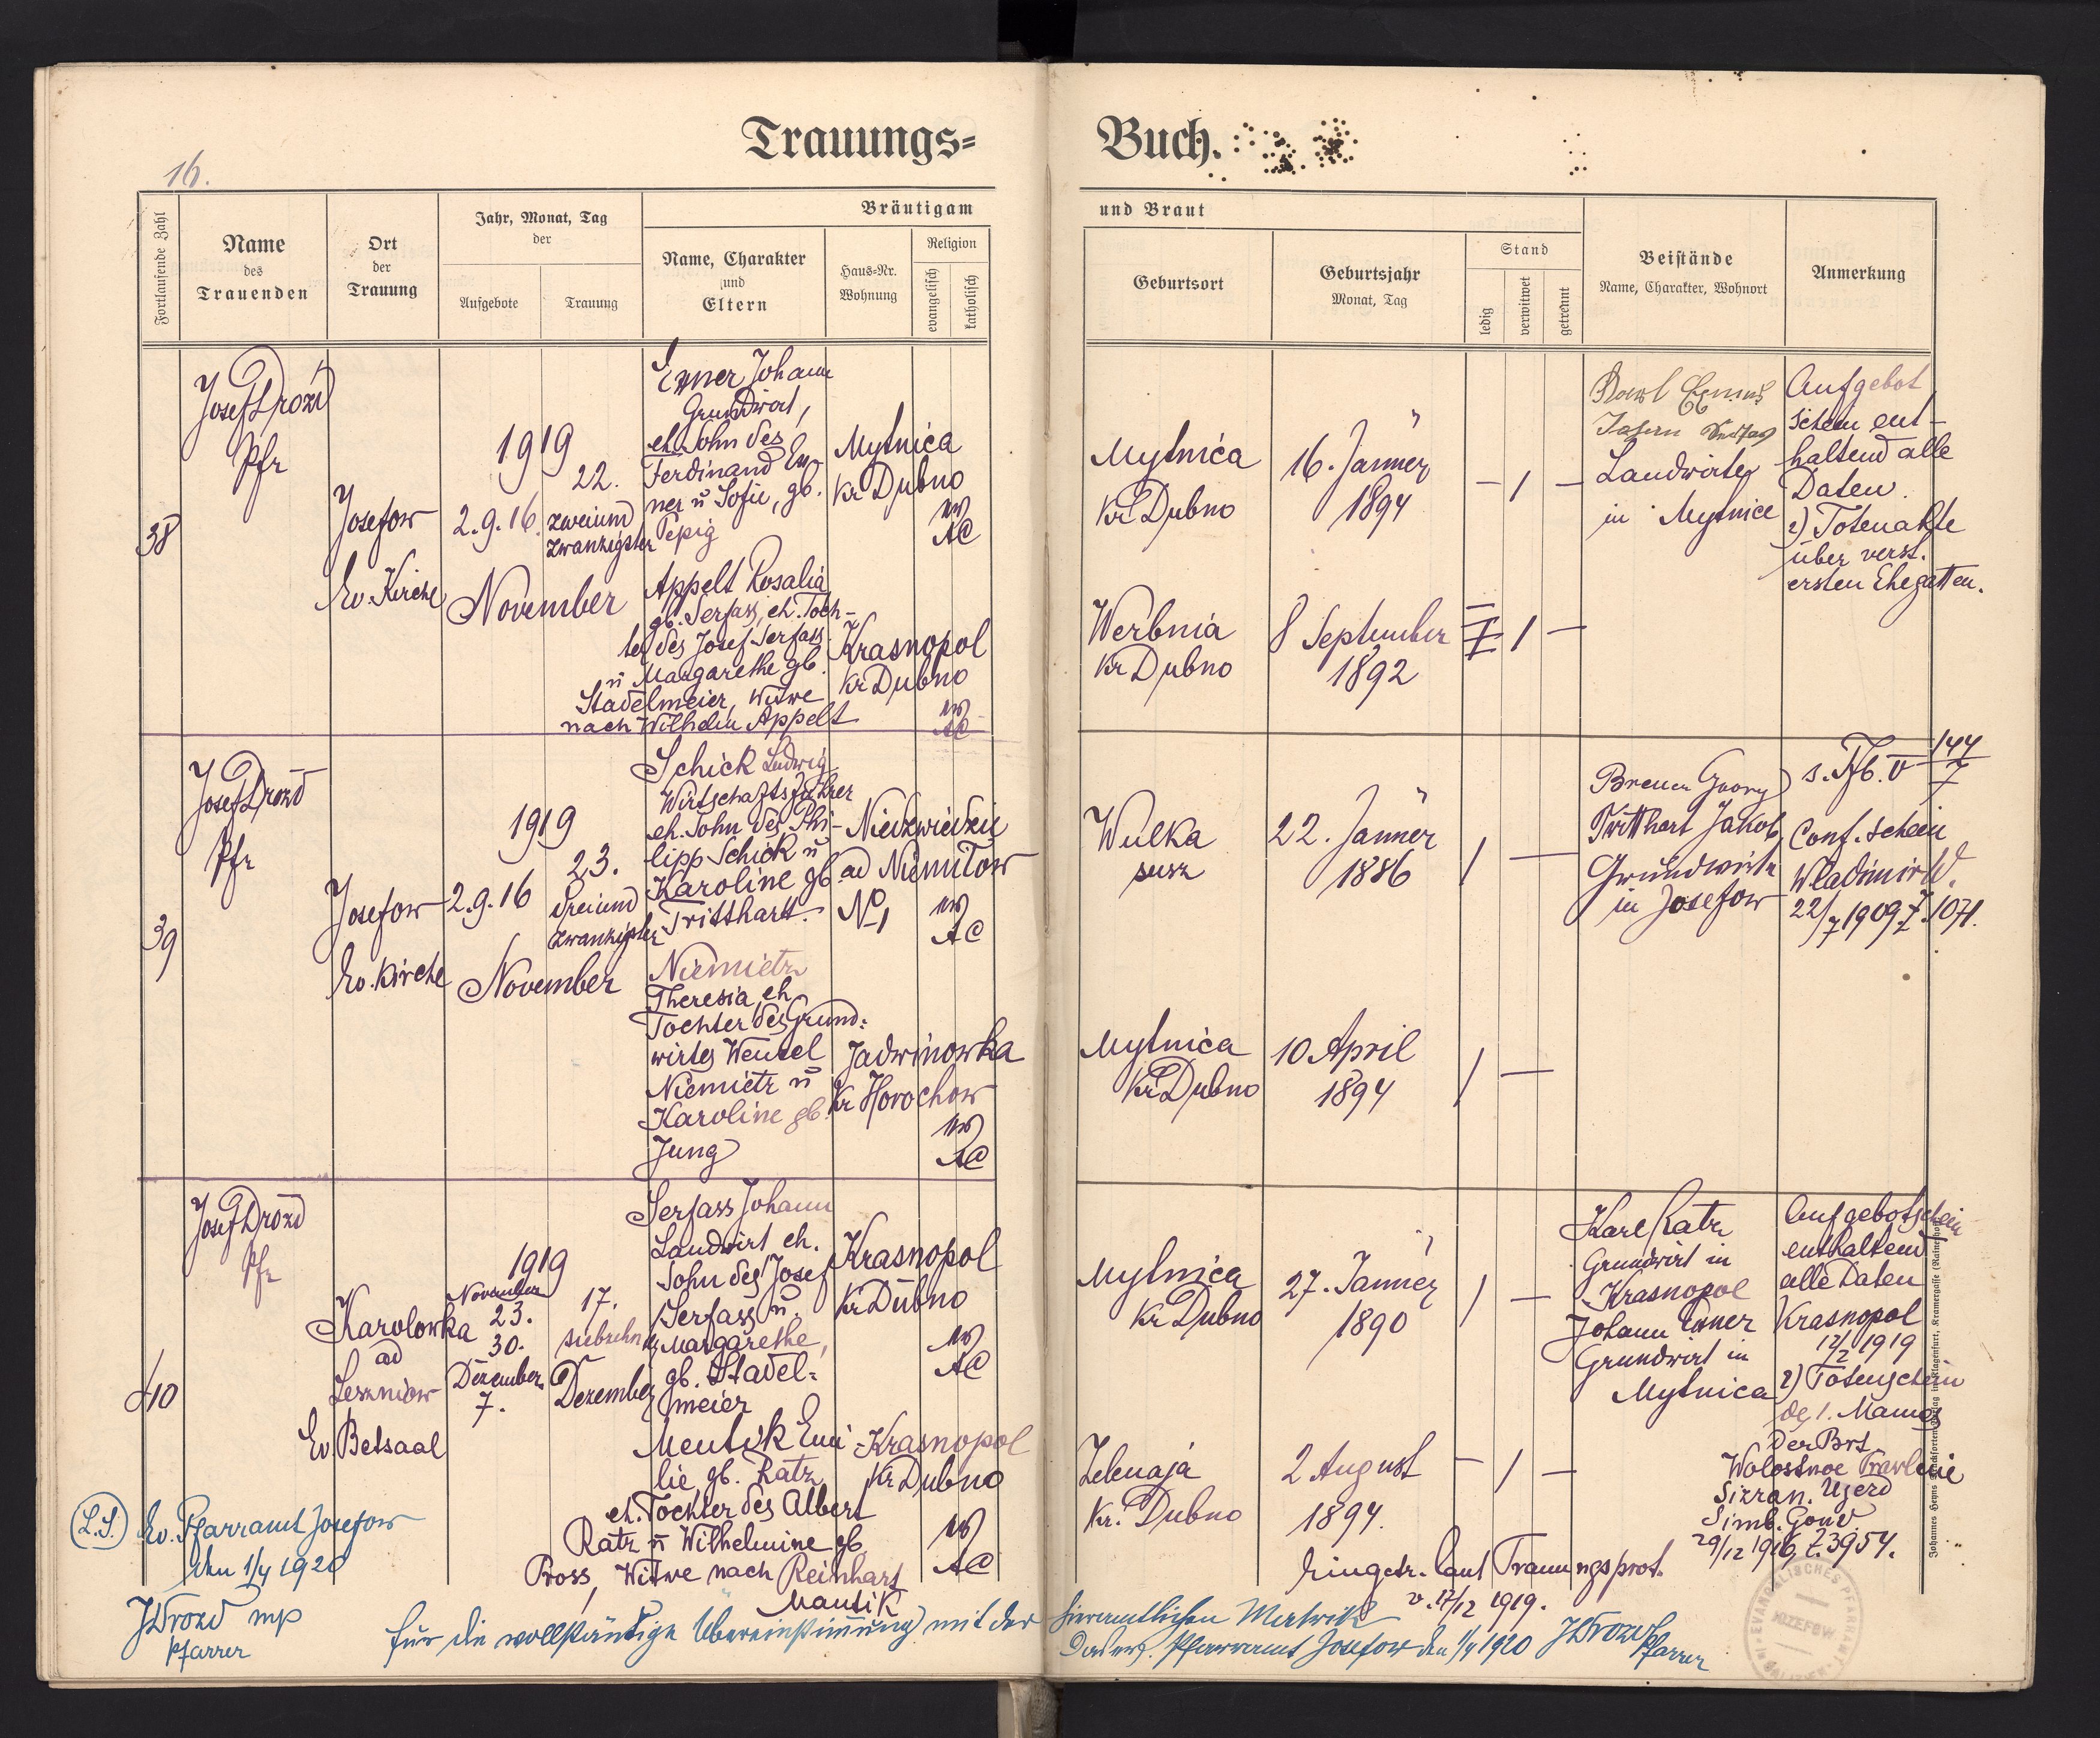 16.
Trauungs=
Buch.
Fortlaufende Zahl
Name
des
Trauenden
Ort
der
Trauung
Jahr, Monat, Tag
der
Aufgebote
Trauung
Bräutigam
Name, Charakter
und
Eltern
Haus=Nr.
Wohnung
Religion
evangelisch
katholisch
und Braut
Geburtsort
Geburtsjahr
Monat, Tag
Stand
ledig
verwitwet
getrennt
Beistände
Name, Charakter, Wohnort
Anmerkung
38
Josef Drozd
Pfr
Josefow
Ev. Kirche
1919
2. 9. 16.
22.
zweiund
zwanzigster
November
Exner Johann
Grundwirt,
eh. Sohn des
Ferdinand Ex
ner u Sofie, gb.
Pepig
Mytnica
Kr Dubno
AC
Appelt Rosalia
gb. Serfass, eh. Toch-
ter des Josef Serfass
u Margarethe gb.
Stadelmeier, Witwe
nach Wilhelm Appelt
Krasnopol
Kr Dubno
AC
Mytnica
Kr Dubno
16. Jänner
1894
– 1 –
Werbnia
Kr Dubno
8 September
1892
1 –
Karl
Landwirte
in Mytnice
Aufgebot
schein ent-
haltend alle
Daten.
2) Totenakte
über verst.
ersten Ehegatten.
39
Josef Drozd
Pfr
Josefow
Ev. Kirche
1919
2. 9. 16
23.
dreiund
zwanzigster
November
Schick Ludwig
Wirtschaftsführer
eh. Sohn des Phi-
lipp Schick u
Karoline gb
Tritthart.
Niedzwiedzie
ad Niemilow
No 1
AC
Niemietz
Theresia, eh
Tochter des Grund=
wirtes Wenzel
Niemietz u
Karoline gb.
Jung
Jadwinowka
Kr Horochow
AC
Wulka
susz
22. Jänner
1886
1 –
Mytnica
Kr Dubno
10 April
1894
1 –
Breuer Georg
Tritthart Jakob
Grundwirte
in Josefow
s. Tfb. V 144/7
Conf. schein
Wladimir W.
22/7 1909 Z. 1071.
40
Josef Drozd
Pfr
Karolowka
ad
Leszniow
Ev Betsaal
1919
November
23.
30.
Dezember
7.
17.
siebzehnter
Dezember
Serfass Johann
Landwirt eh.
Sohn des Josef
Serfass u.
Margarethe,
gb. Stadel=
meier
Krasnopol
Kr Dubno
AC
Mentik Emi-
lie, gb. Ratz
eh. Tochter des Albert
Ratz u Wilhelmine gb
Pross, Witwe nach Reinhart
Mantik
Krasnopol
Kr Dubno
AC
Mytnica
Kr Dubno
27. Jänner
1890
1 –
Zelenaja
Kr. Dubno
2 August
1894.
– 1 –
Karl Ratz
Grundwirt in
Krasnopol
Johann Exner
Grundwirt in
Mytnica
Aufgebotschein
enthaltend
alle Daten
Krasnopol
1919
2) Totenschein
des 1. Mannes
Wolostnoe Prawlenie
Sizran. Ujezd
Simb. Gouv
29/12 1916 Z. 3954.
Eingetr. laut Trauungsprot.
v. 17/12 1919.
(L.S.) Ev. Pfarramt Josefow
den 1/4 1920
JDrozd mp
Pfarrer
für die vollständige Übereinstimmung mit der hieramtlichen Matrik
Das ev. Pfarramt Josefow den 1/4 1920 JDrozd
Pfarrer
EVANGELISCHES PFARRAMT
JOZEFOW